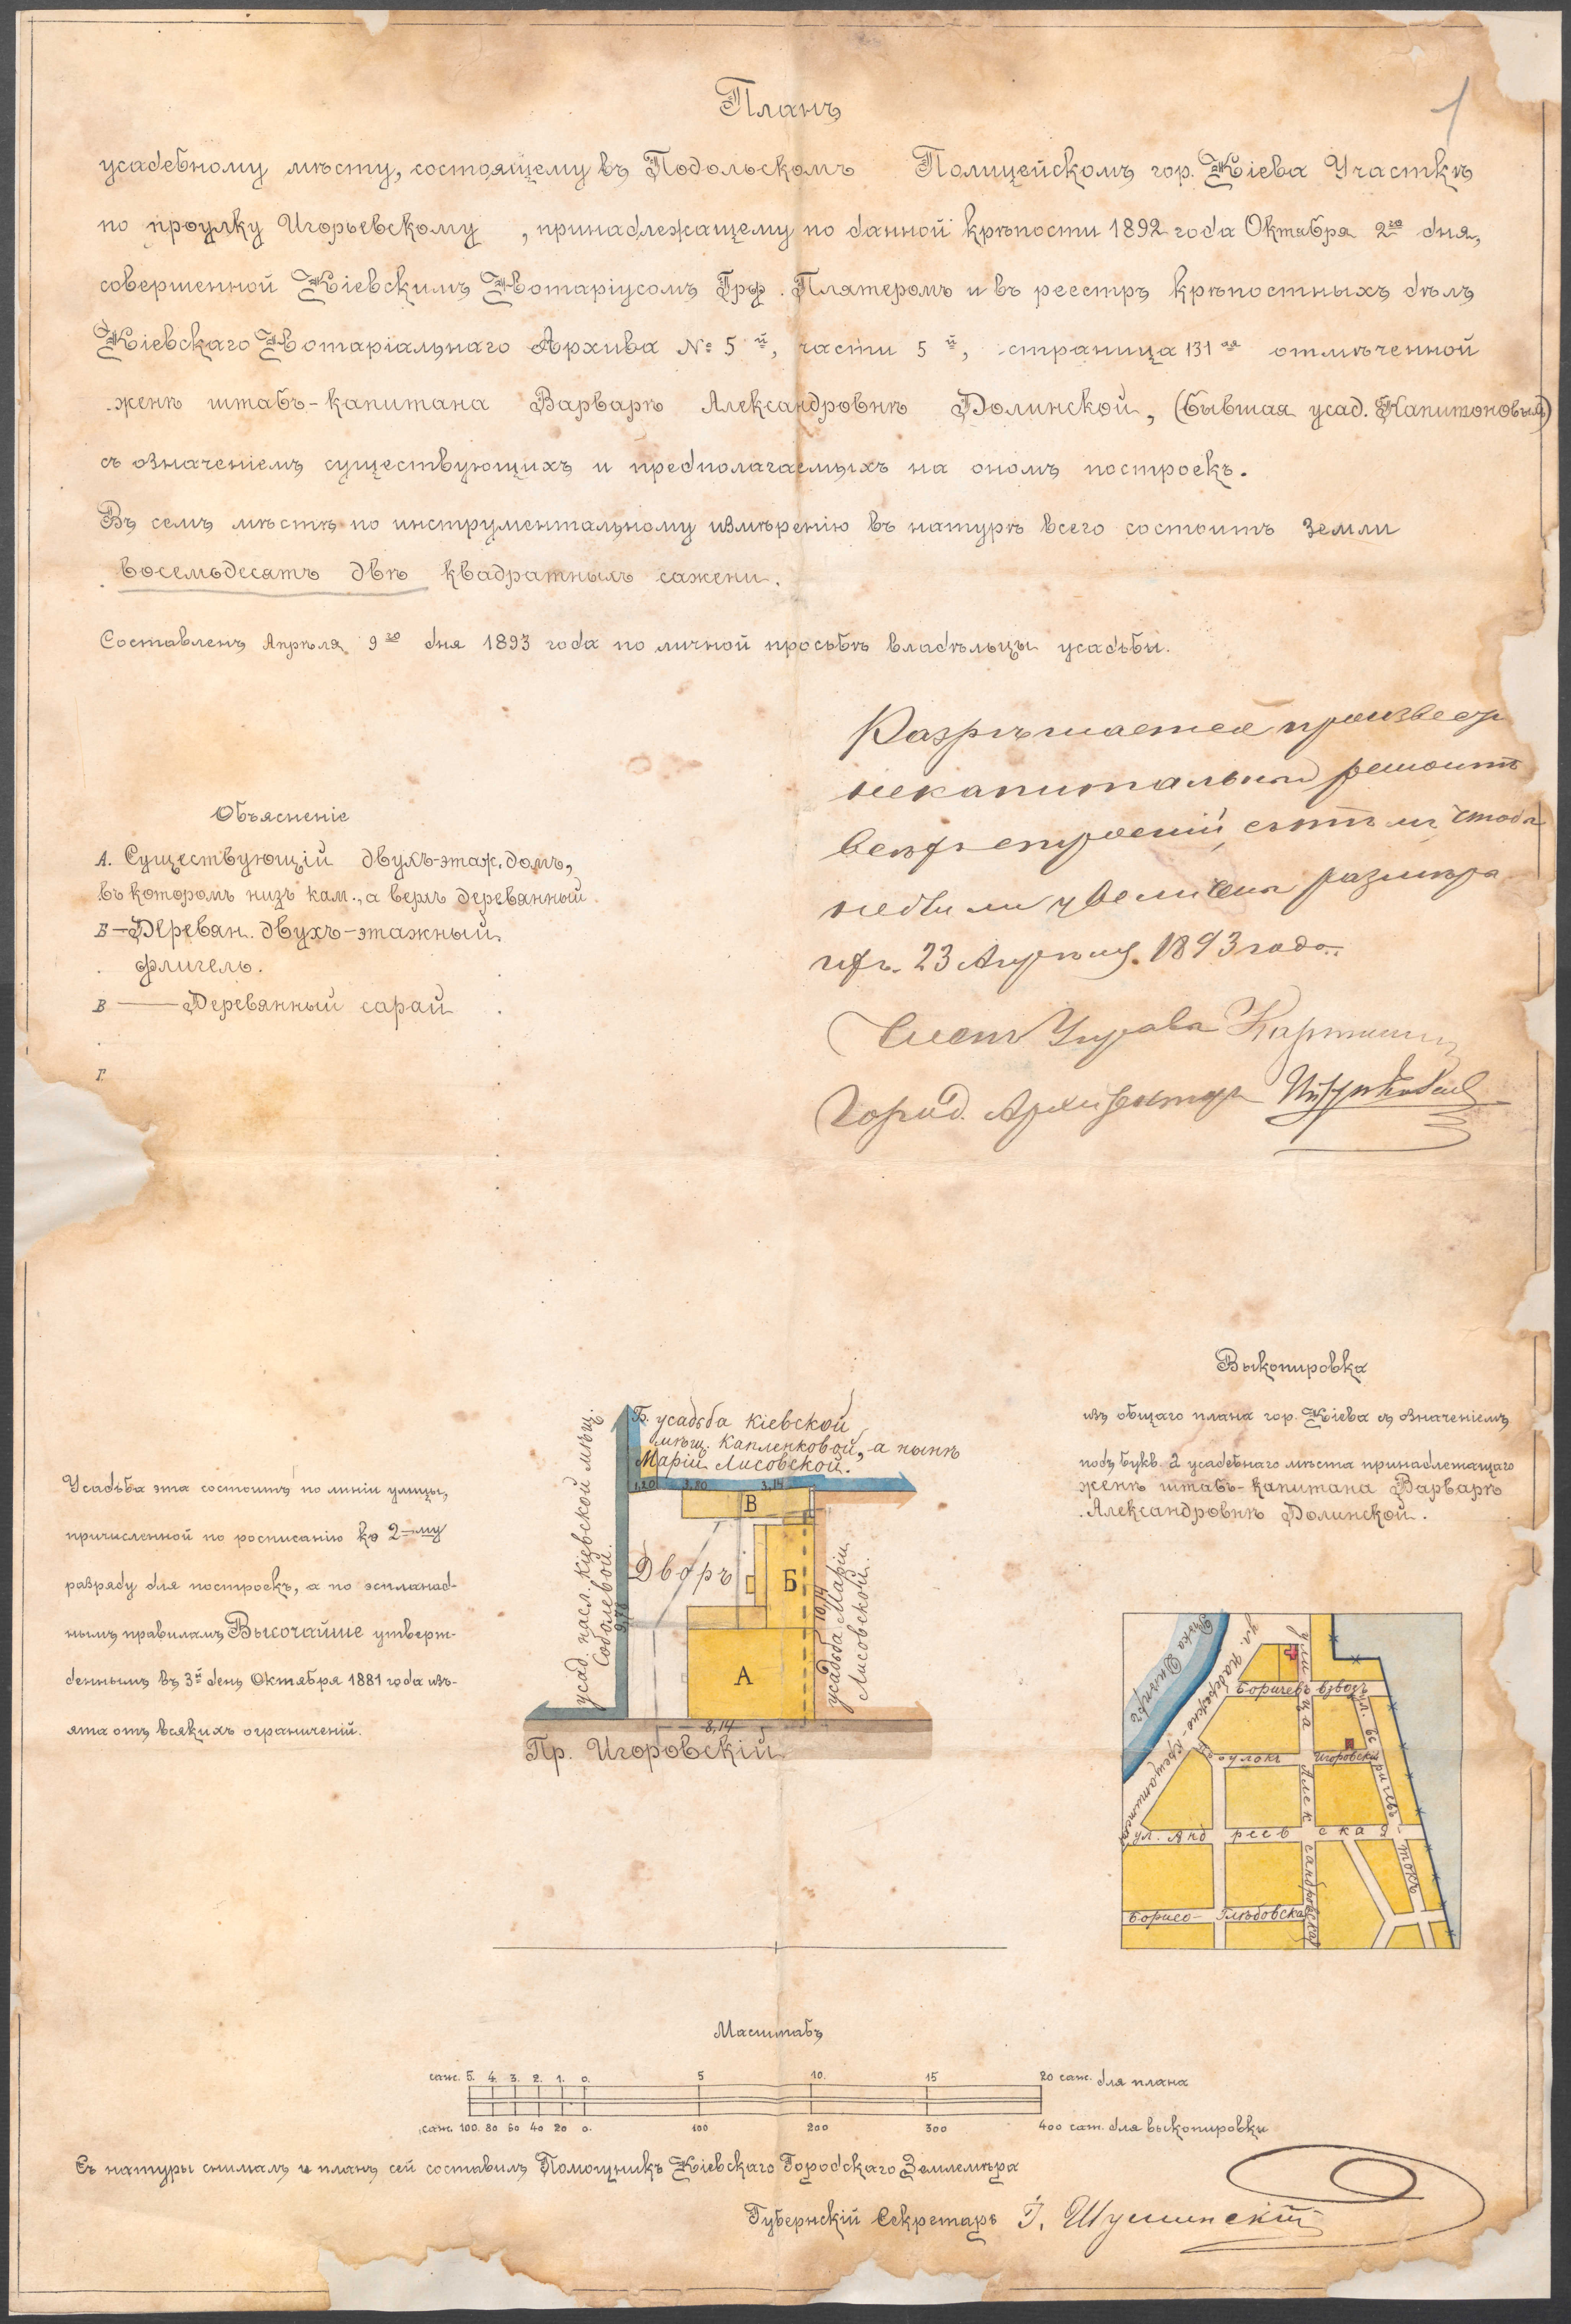 1
Планъ
усадебному мѣсту, состоящему въ Подольскомъ Полицейскомъ гор. Кіева Участкѣ
по проулку Игорьевскому , принадлежащему по данной крѣпости 1892 года Октября 2го дня,
совершенной Кіевскимъ Нотаріусомъ Грф. Плятеромъ и въ реестръ крѣпостныхъ дѣлъ
Кіевскаго Нотаріальнаго Архива № 5й, части 5й, страница 131ая отмѣченной
женѣ штабъ-капитана Варварѣ Александровнѣ Долинской, (бывшая усад. Капитоновыхъ)
съ означеніемъ существующихъ и предполагаемыхъ на ономъ построекъ.
Въ семъ мѣстѣ по инструментальному измѣренію въ натурѣ всего состоитъ земли
восемьдесятъ двѣ квадратныхъ сажени.
Составленъ Апрѣля 9го дня 1893 года по личной просьбѣ владѣльцы усадьбы.
Разрѣшается произвест
некапитальный ремонтъ
всѣхъ строеній, съ тѣмъ, чтобы
небыли увеличены размѣра
ихъ. 23 Апрѣля 1893 года.
Членъ Управы
Город. Архитекторъ
Объясненіе
А. Существующій двухъ-этаж. домъ,
въ которомъ низъ кам., а верхъ деревянный.
Б — Деревян. двухъ-этажный
флигель.
В — Деревянный сарай
Г.
Усадьба эта состоитъ по линіи улицы,
причисленной по росписанію ко 2-му
разряду для построекъ, а по эспланад-
нымъ правиламъ Высочайше утверж-
деннымъ въ 3й день Октября 1881 года изъ-
ята отъ всякихъ ограниченій.
Б. усадьба Кіевской
мѣщ. Капленковой, а нынѣ
Маріи Лисовской.
усад. насл. Кіевской мѣщ.
Соболевой.
1,20 3,80 3,14
В
Дворъ
Б
9,78
10,14
усадьба Маріи
Лисовской.
А
8,14
Пр. Игоровскій
Выкопировка
изъ общаго плана гор. Кіева съ означеніемъ
подъ букв. а усадебнаго мѣста принадлежащаго
женѣ штабъ-капитана Варварѣ
Александровнѣ Долинской.
Рѣка Днѣпръ
ул. Набережно-Крещатитск.
Улица Александровская
Боричевъ взвозъ
ул. Боричевъ-токъ
Проулокъ Игоровскій
ул. Андреевская
Борисо-Глѣбовская
Масштабъ
саж. 5. 4. 3. 2. 1. 0. 5 10. 15 20 саж. для плана
саж. 100. 80 60 40 20 0. 100 200 300 400 саж. для выкопировки
Съ натуры снималъ и планъ сей составилъ Помощникъ Кіевскаго Городскаго Землемѣра
Губернскій Секретарь І. Шуминскій